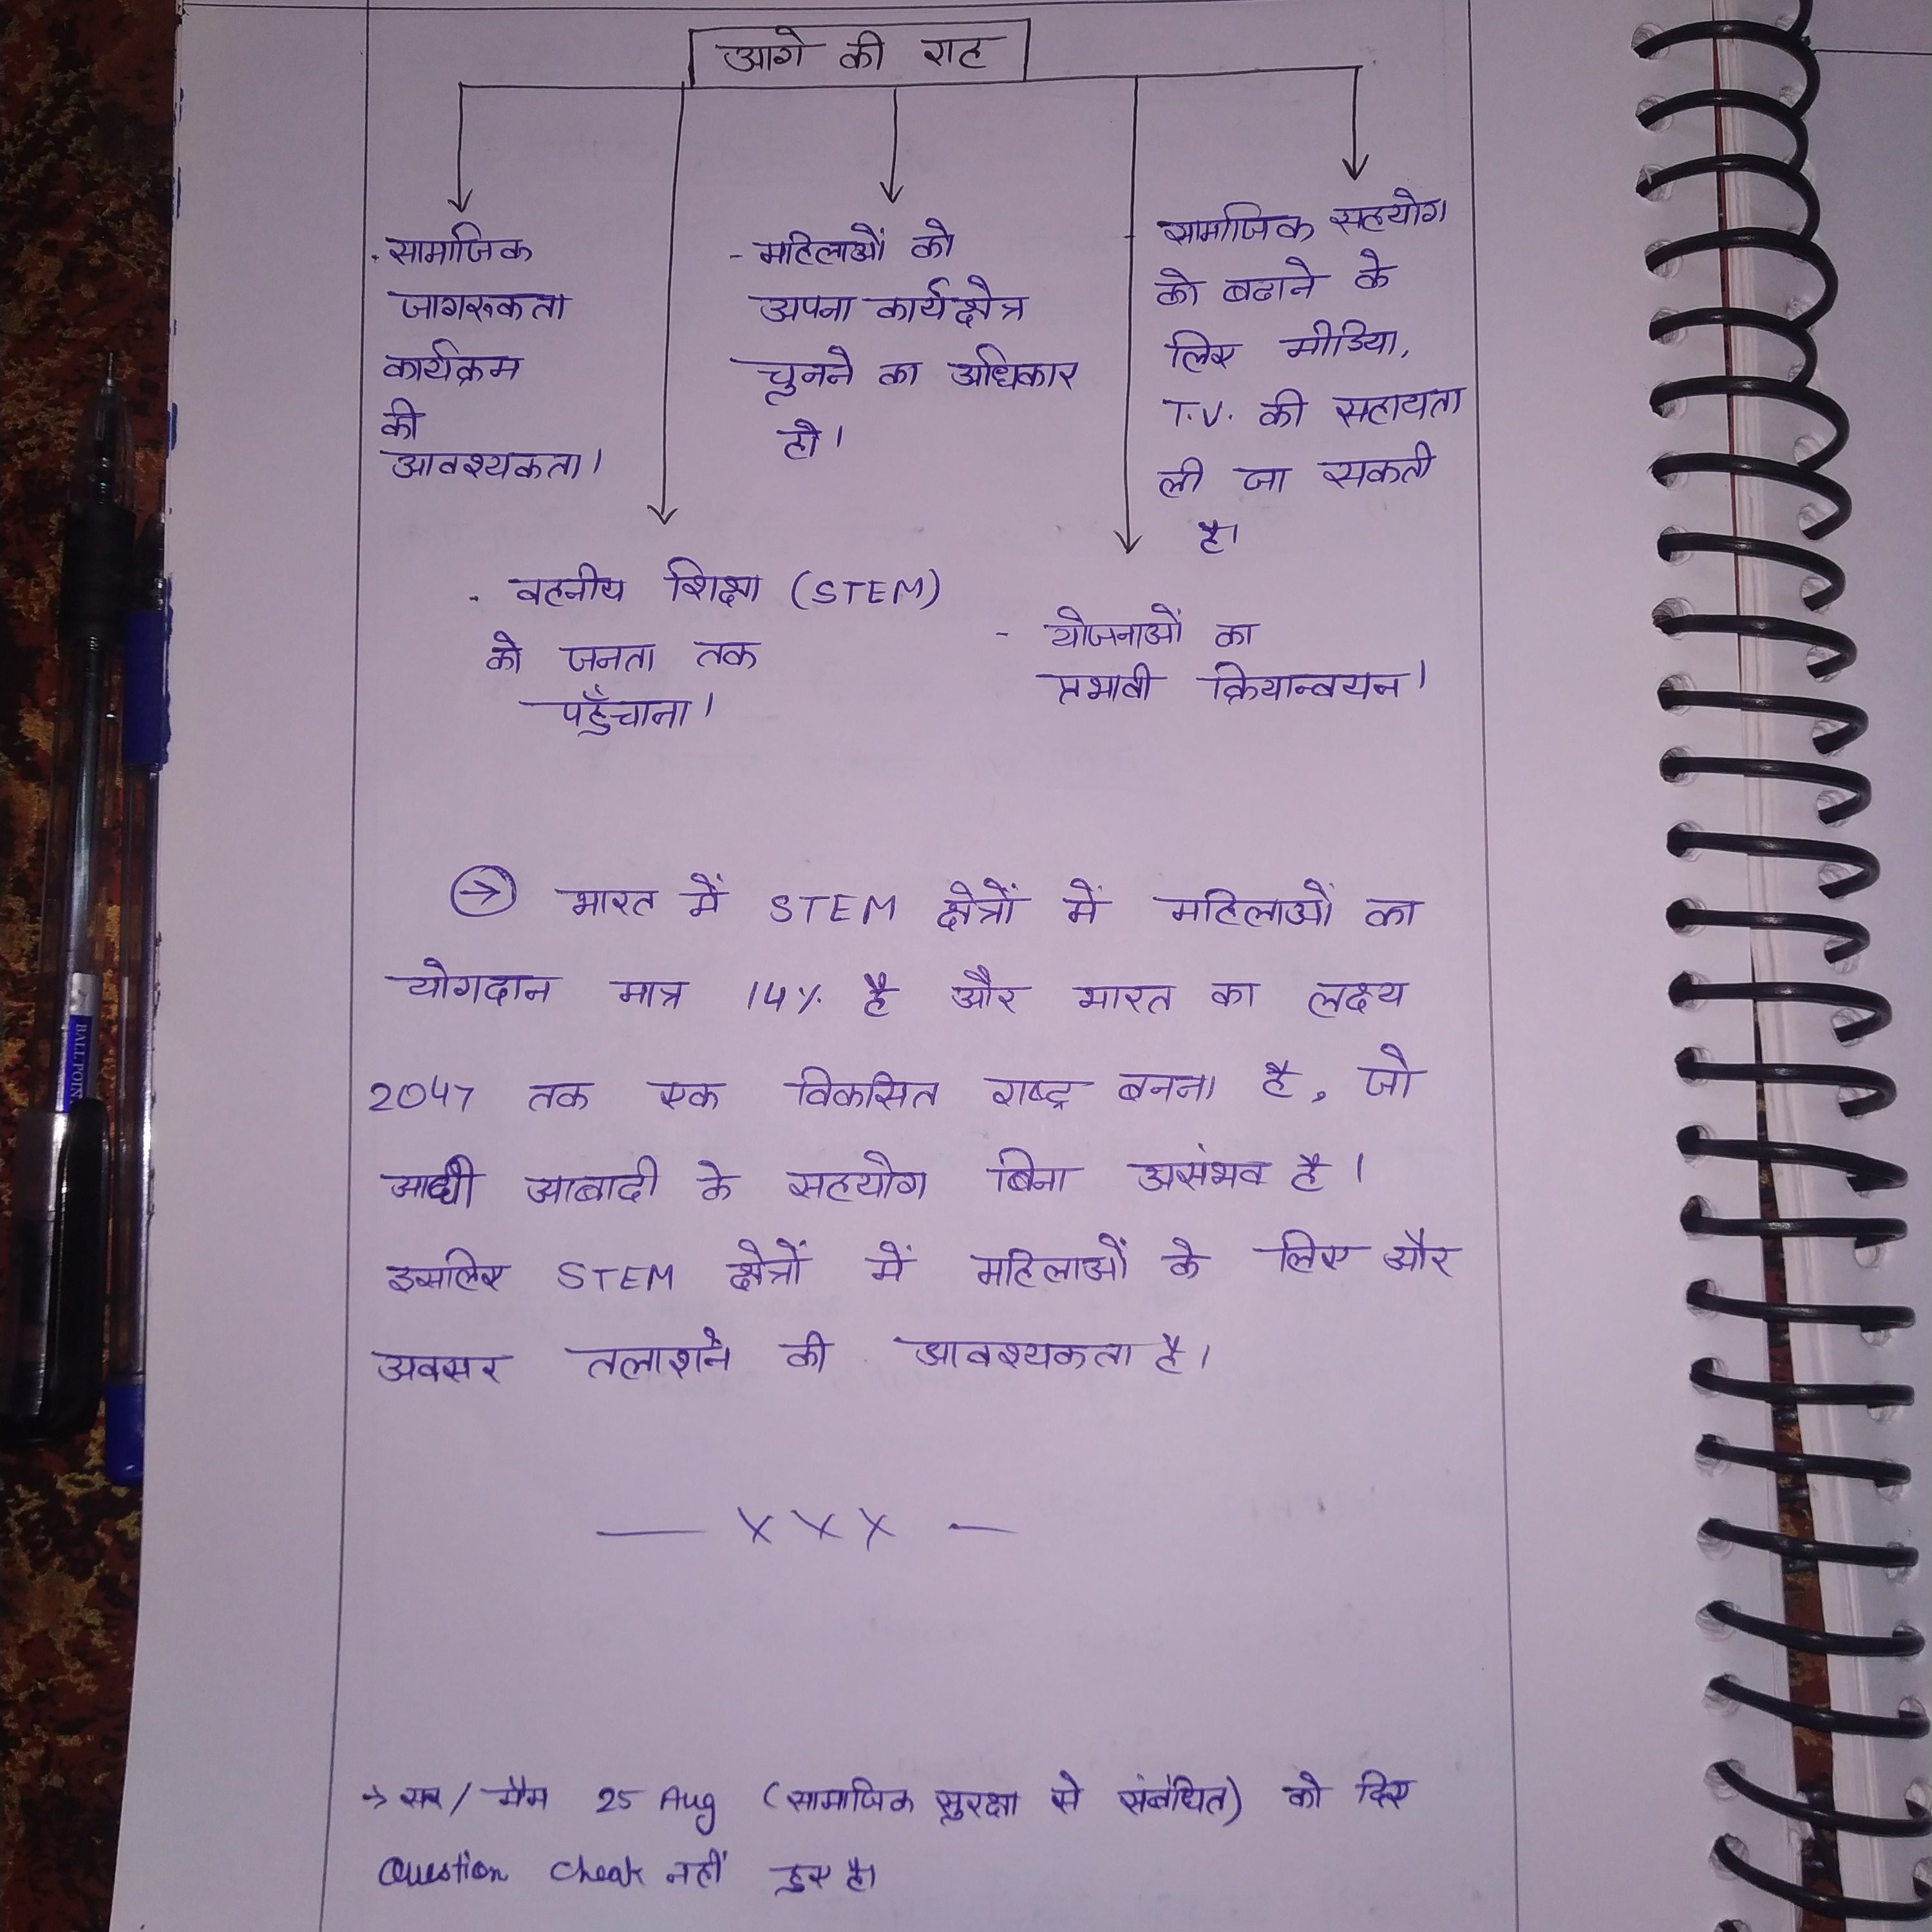 आगे की राह
. सामाजिक
जागरुकता
कार्यक्रम
की
आवश्यकता।
- महिलाओं को
अपना कार्यक्षेत्र
चुनने का अधिकार
हो।
- सामाजिक सहयोग
को बढाने के
लिए मीडिया,
T.V. की सहायता
ली जा सकती
है।
- वहनीय शिक्षा (STEM)
को जनता तक
पहुँचाना।
- योजनाओं का
प्रभावी क्रियान्वयन।
→ भारत में STEM क्षेत्रों में महिलाओं का
योगदान मात्र 14% है और भारत का लक्ष्य
2047 तक एक विकसित राष्ट्र बनना है, जो
आधी आबादी के सहयोग बिना असंभव है।
इसलिए STEM क्षेत्रों में महिलाओं के लिए और
अवसर तलाशने की आवश्यकता है।
— x x x —
→ सर / मैम 25 Aug (सामाजिक सुरक्षा से संबंधित) को दिए
Question cheak नहीं हुए है।
BALL POIN